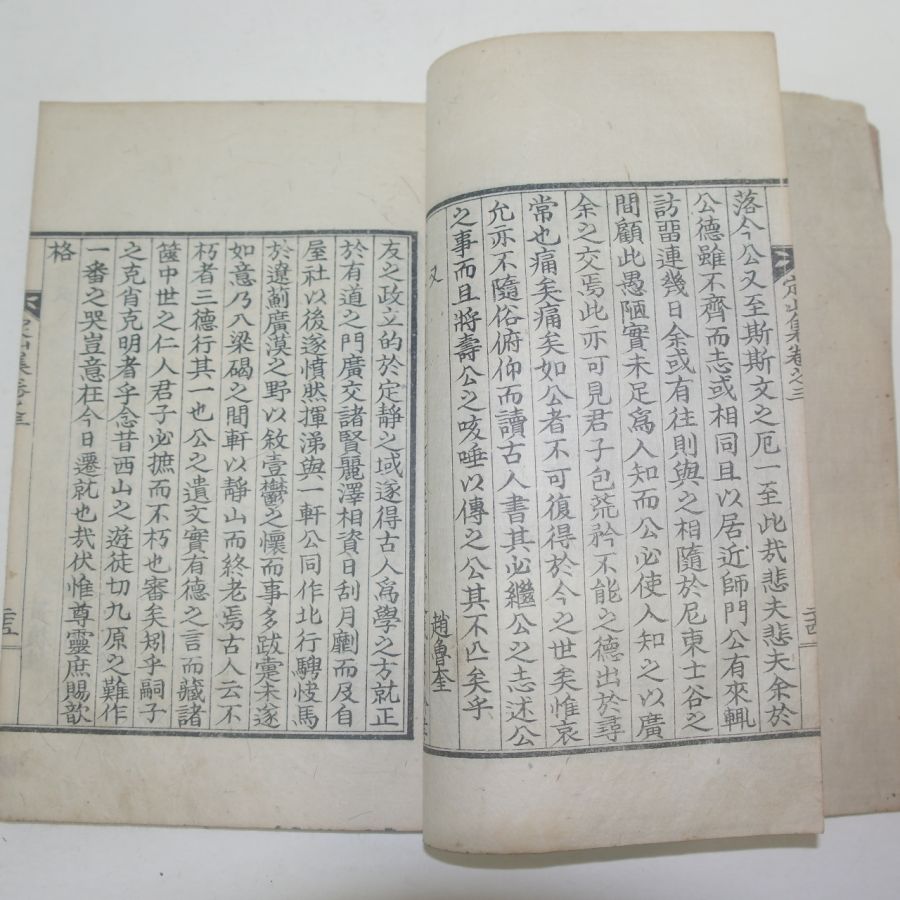 落今公又至斯斯文之厄一至此哉悲夫悲夫余於
公德雖不齊而志或相同且以居近師門公有來輒
訪畱連幾日余或有往則與之相隨於尼東士谷之
間顧此愚陋實未足爲人知而公必使人知之以廣
余之交焉此亦可見君子包荒矜不能之德出於尋
常也痛矣痛矣如公者不可復得於今之世矣惟哀
允亦不隨俗俯仰而讀古人書其必繼公之志述公
之事而且將壽公之咳唾以傳之公其不亾矣乎
又 趙魯奎
友之政立的於定靜之域遂得古人爲學之方就正
於有道之門廣交諸賢麗澤相資日刮月劘而及自
屋社以後遂憤然揮涕與一軒公同作北行騁快馬
於遼薊廣漠之野以敘壹鬱之懷而事多跋疐未遂
如意乃八梁碣之間軒以靜山而終老焉古人云不
朽者三德行其一也公之遺文實有德之言而藏諸
篋中世之仁人君子必摭而不朽也審矣矧乎嗣子
之克肖克明者乎念昔西山之遊徒切九原之難作
一番之哭豈意在今日遷就也哉伏惟尊靈庶賜歆
格
卷之三